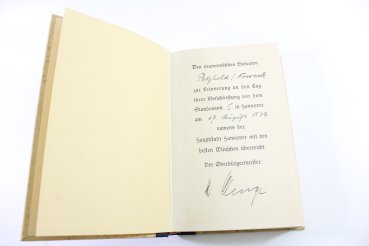 Den neuvermählten Eheleuten
Petzhold /
zur Erinnerung an den Tag
ihrer Eheschließung vor dem
Standesamt I in Hannover
am 17. August 1936
namens der
Hauptstadt Hannover mit den
besten Wünschen überreicht.
Der Oberbürgermeister: